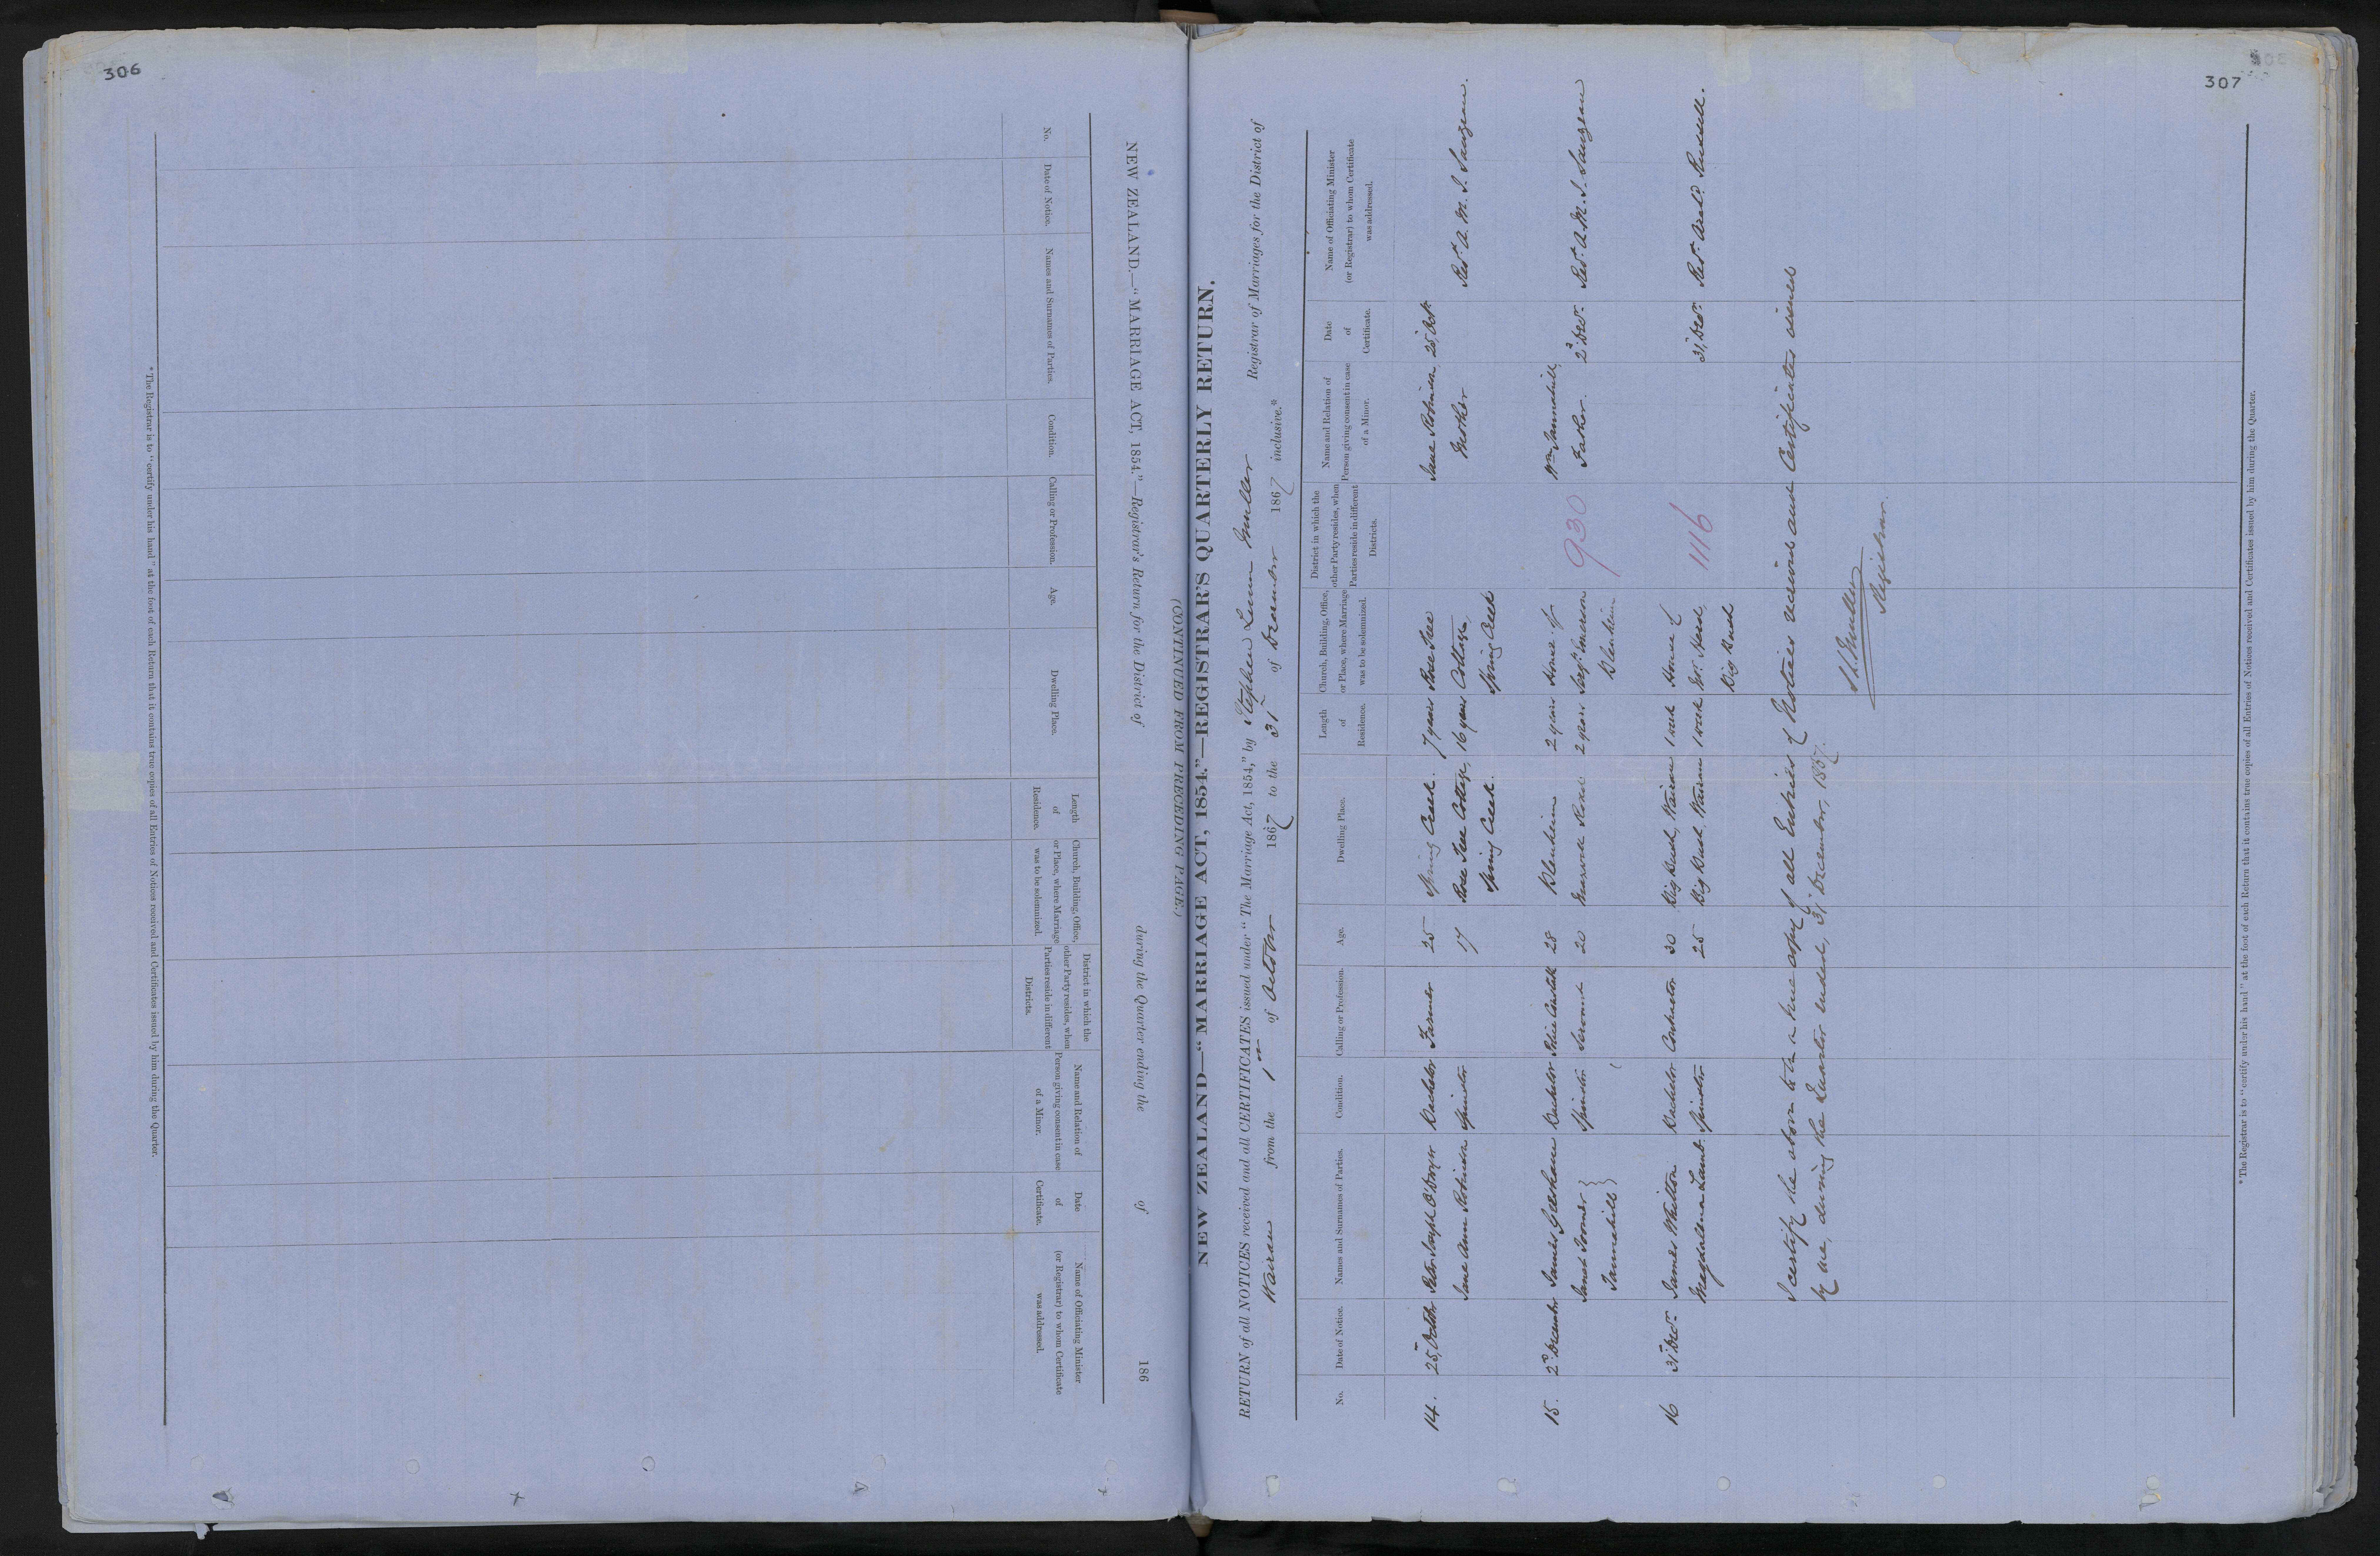 306
NEW ZEALAND.—"MARRIAGE ACT, 1854."—Registrar's Return for the District of during the Quarter ending the of 186
(CONTINUED FROM PRECEDING PAGE.)
No.
Date of Notice.
Names and Surnames of Parties.
Condition.
Calling or Profession.
Age.
Dwelling Place.
Length
of
Residence.
Church, Building, Office,
or Place, where Marriage
was to be solemnized.
District in which the
other Party resides, when
Parties reside in different
Districts.
Name and Relation of
Person giving consent in case
of a Minor.
Date
of
Certificate.
Name of Officiating Minister
(or Registrar) to whom Certificate
was addressed.
* The Registrar is to "certify under his hand" at the foot of each Return that it contains true copies of all Entries of Notices received and Certificates issued by him during the Quarter.
307
NEW ZEALAND—"MARRIAGE ACT, 1854."—REGISTRAR'S QUARTERLY RETURN.
RETURN of all NOTICES received and all CERTIFICATES issued under "The Marriage Act, 1854," by Stephen Lunn Muller Registrar of Marriages for the District of
Wairau from the 1st of October 1867 to the 31st of December 1867 inclusive.*
No.
Date of Notice.
Names and Surnames of Parties.
Condition.
Calling or Profession.
Age.
Dwelling Place.
Length
of
Residence.
Church, Building, Office,
or Place, where Marriage
was to be solemnized.
District in which the
other Party resides, when
Parties reside in different
Districts.
Name and Relation of
Person giving consent in case
of a Minor.
Date
of
Certificate.
Name of Officiating Minister
(or Registrar) to whom Certificate
was addressed.
14. 25 October Peter Joseph O'Dwyer Bachelor Farmer 25 Spring Creek. 7 years Rose Tree Jane Robinson, 25 Octr
Jane Ann Robinson Spinster 17 Rose Tree Cottage, 16 years Cottage, Mother Revd. A. M. S.
Spring Creek. Spring Creek
15. 2d December James Bachelor Police Constable 28 Blenheim 2 years House of 930 Wm Tannahill,
Janet Spinster Servant 20 Maxwell Road 2 years Sergt. Emerson Father. 2d Decr. Revd. A. M. S.
Tannahill Blenheim
16 31st Decr. James Whitton Bachelor Contractor 30 Big Bush, Wairau 1 week House of 1116
Magdalena Lamb. Spinster 25 Big Bush, Wairau 1 week Mr. 31st Decr. Revd. Arcd. Russell.
Big Bush
I certify the above to be a true copy of all Entries of Notices received and Certificates issued
by me, during the Quarter ended, 31st December, 1867.
S. L. Muller
Registrar.
* The Registrar is to "certify under his hand" at the foot of each Return that it contains true copies of all Entries of Notices received and Certificates issued by him during the Quarter.